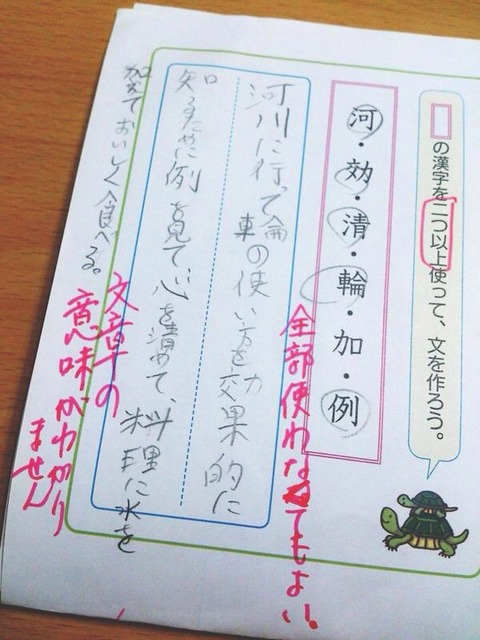 □の漢字を二つ以上使って、文を作ろう。
河・効・清・輪・加・例
全部使わなくてもよい。
河川に行って輪車の使い方を効果的に
知るために例を見て、心を清めて、料理に水を
加えておいしく食べる。
文章の
意味がわかり
ません